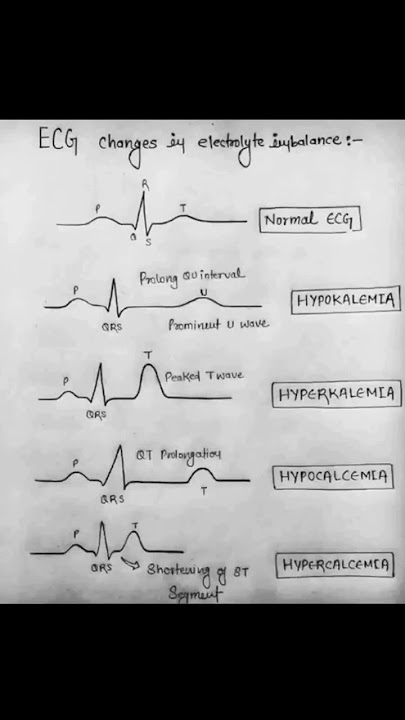 ECG changes in electrolyte imbalance:-
R
P
T
Q
S
Normal ECG
Prolong QU interval
P
U
QRS
Prominent U wave
HYPOKALEMIA
T
Peaked T wave
P
QRS
HYPERKALEMIA
QT Prolongation
P
T
QRS
HYPOCALCEMIA
P
T
QRS
Shortening of ST
Segment
HYPERCALCEMIA